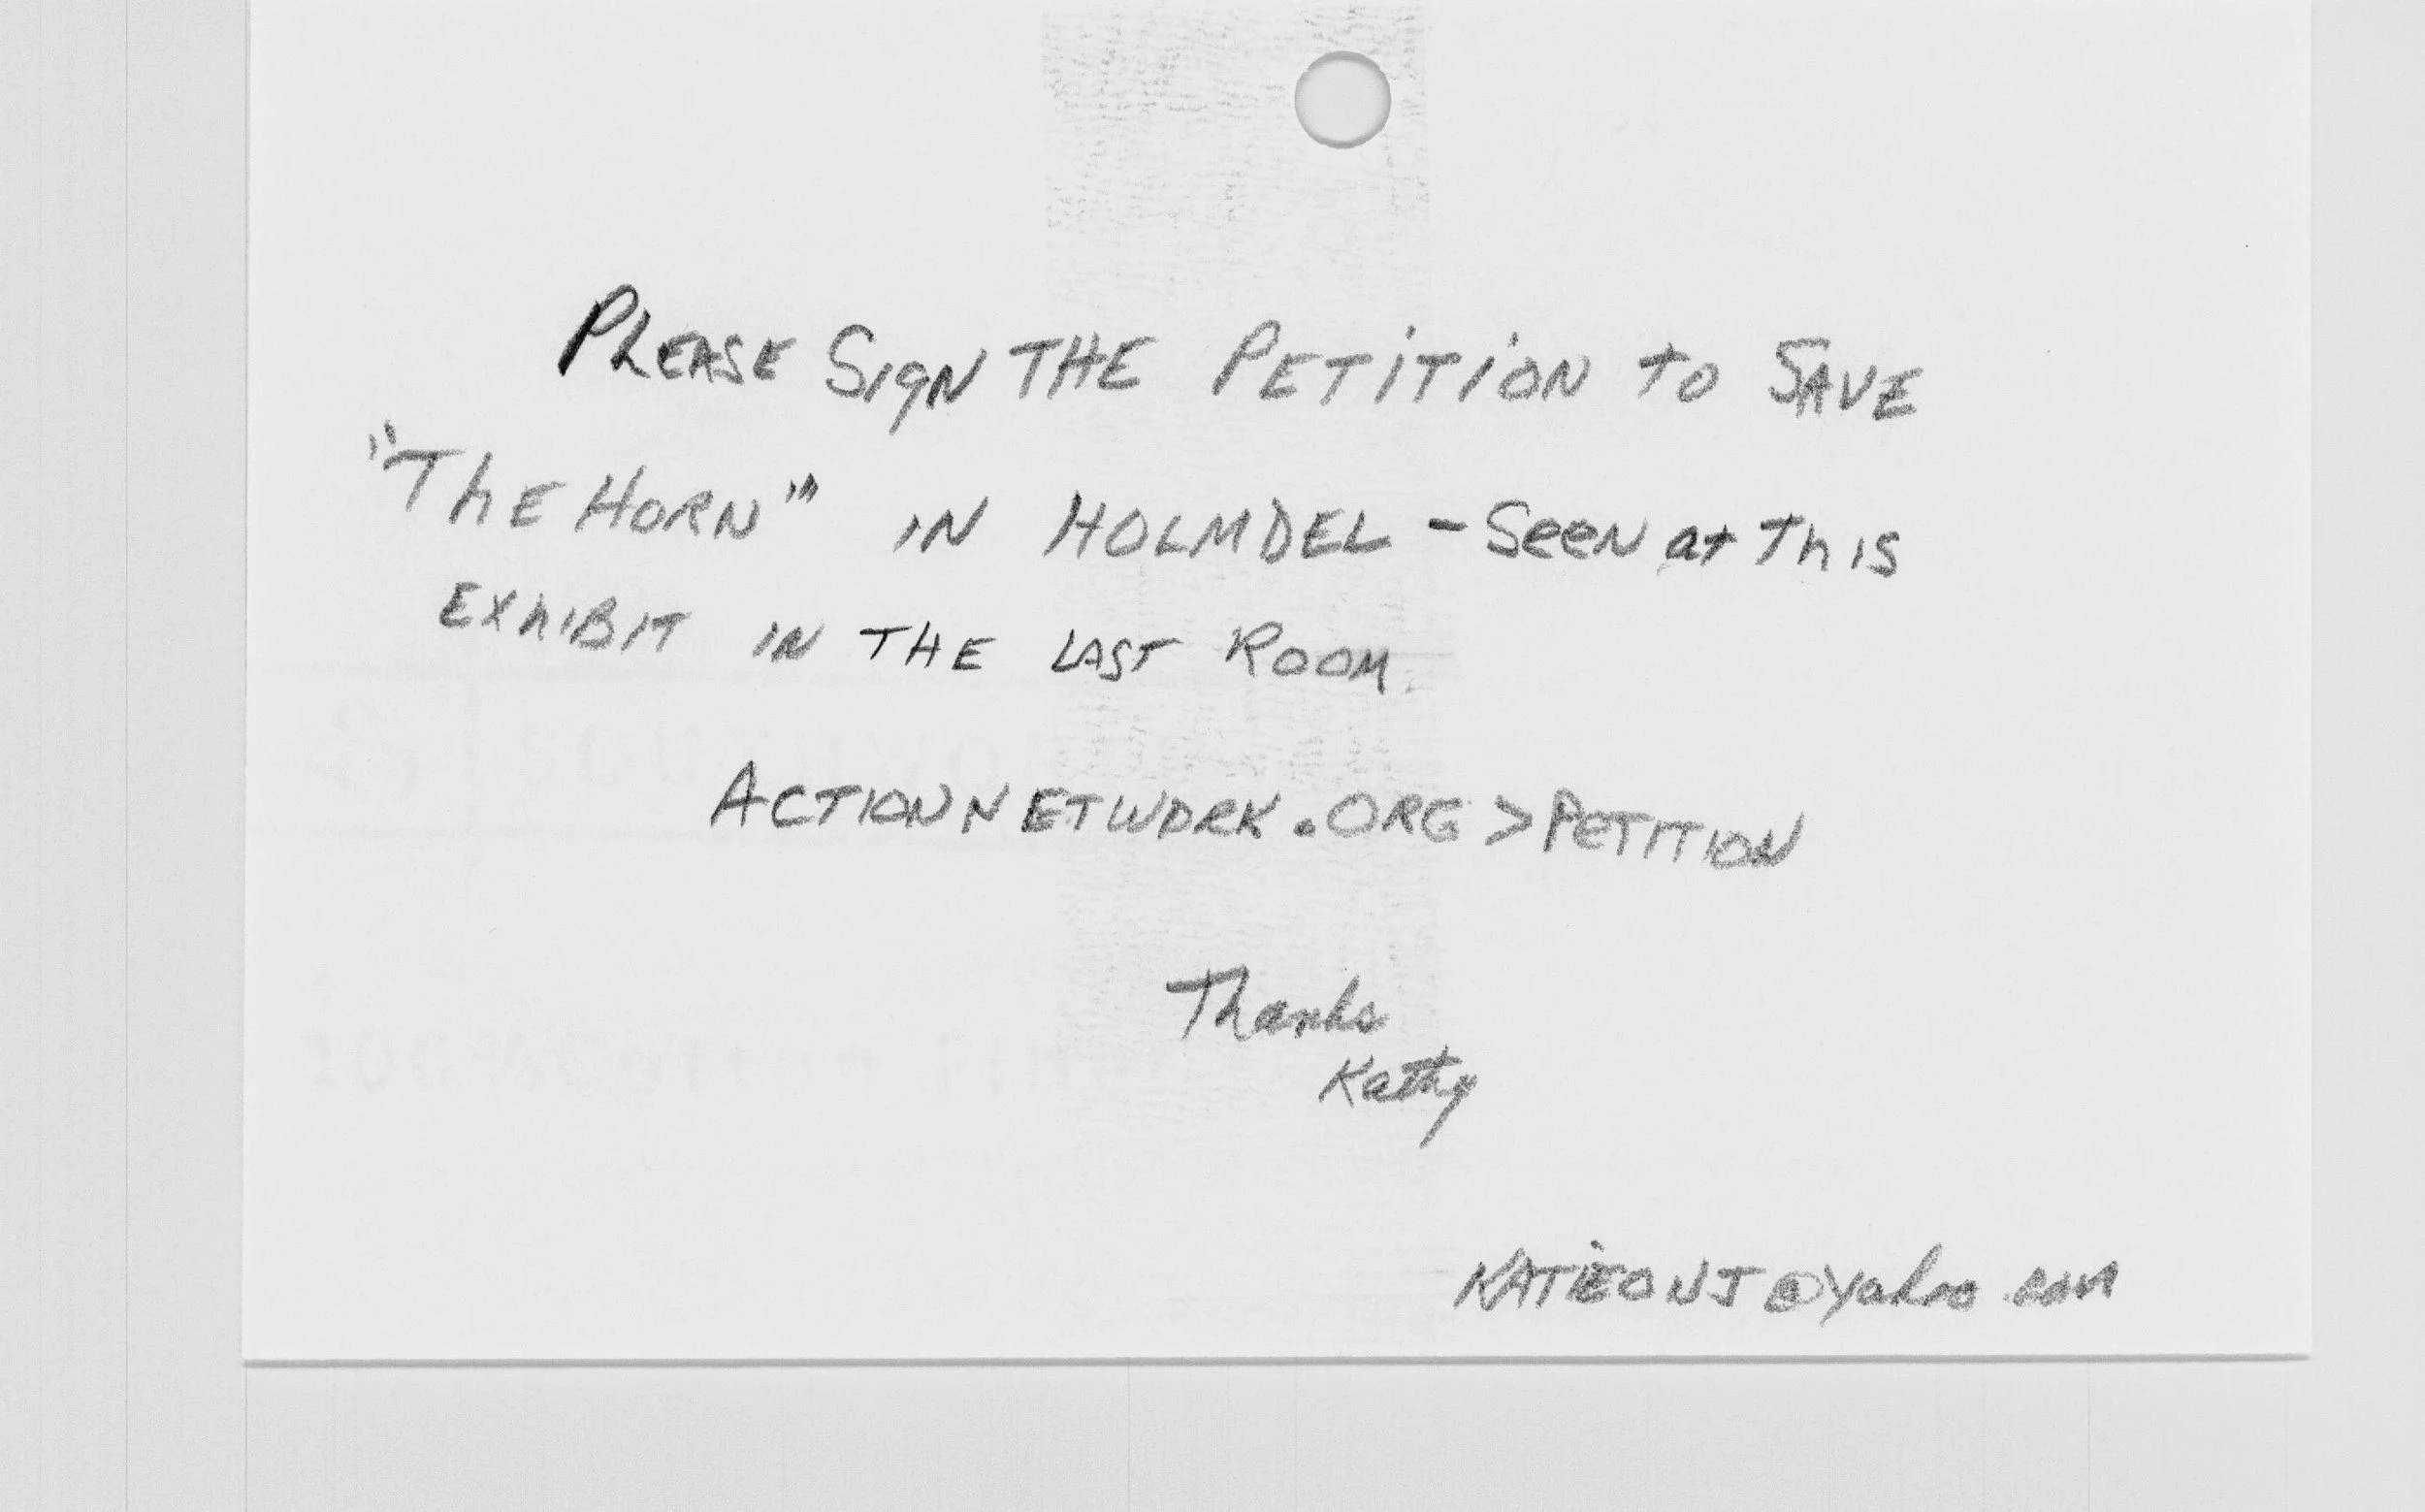 PLEASE SIGN THE PETITION TO SAVE
"THE HORN" IN HOLMDEL - Seen at This
EXHIBIT IN THE LAST ROOM.
ACTIONNETWORK.ORG > PETITION
Thanks
Kathy
KATIEONJ@yahoo.com